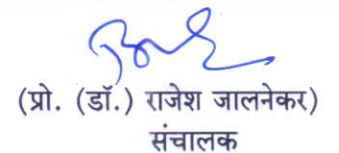 (प्रो. (डॉ.) राजेश जालनेकर)
संचालक